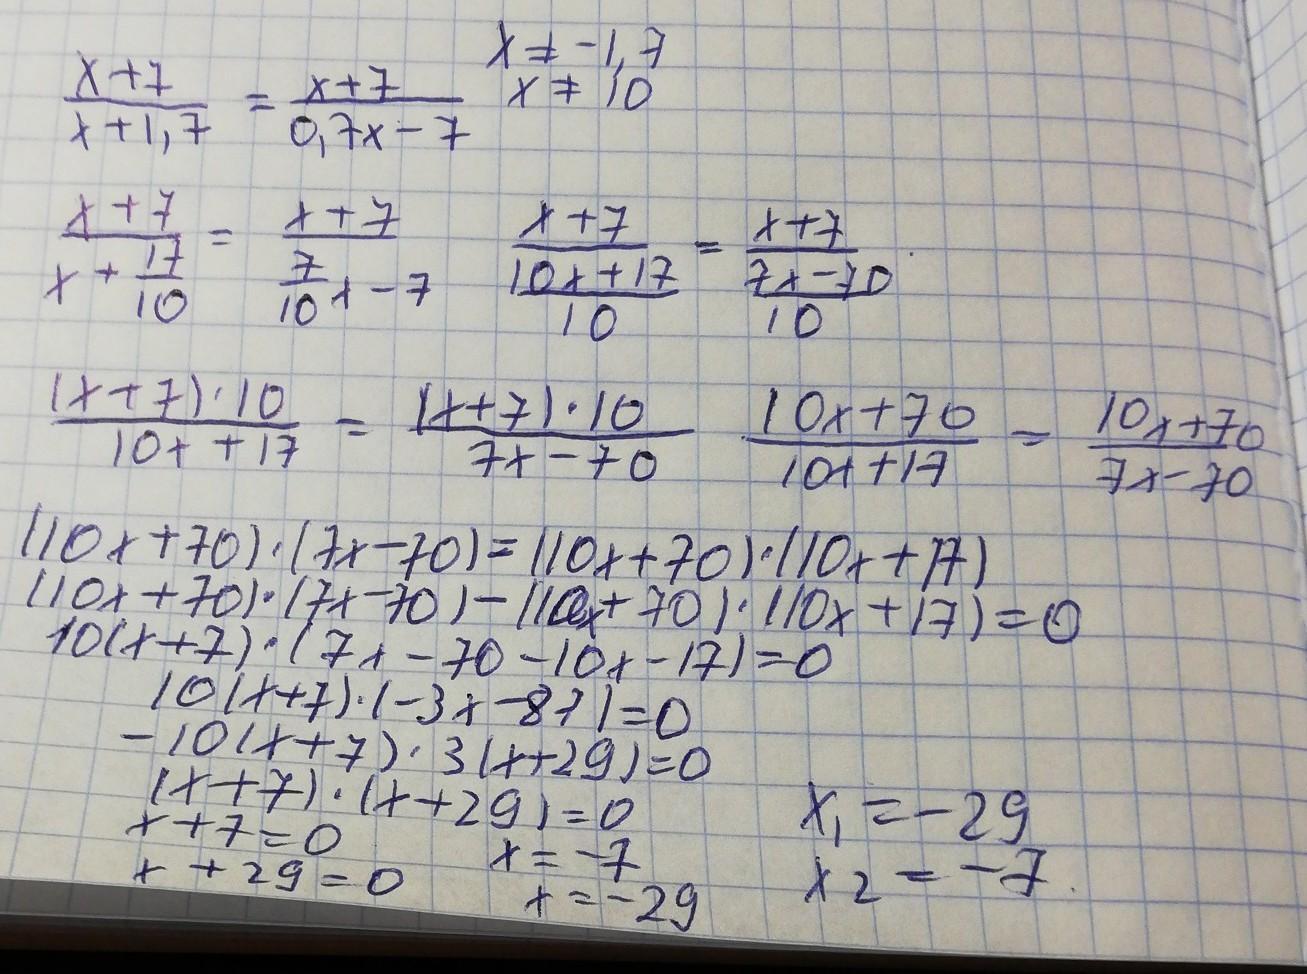 x+7/x+1,7 = x+7/0,7x-7 x ≠ -1,7
x ≠ 10
x+7/x+17/10 = x+7/7/10x-7 x+7/10x+17/10 = x+7/7x-70/10
(x+7)·10/10x+17 = (x+7)·10/7x-70 10x+70/10x+17 = 10x+70/7x-70
(10x+70)·(7x-70)=(10x+70)·(10x+17)
(10x+70)·(7x-70)-(10x+70)·(10x+17)=0
10(x+7)·(7x-70-10x-17)=0
10(x+7)·(-3x-87)=0
-10(x+7)·3(x+29)=0
(x+7)·(x+29)=0
x+7=0 x=-7
x+29=0 x=-29
x1=-29
x2=-7